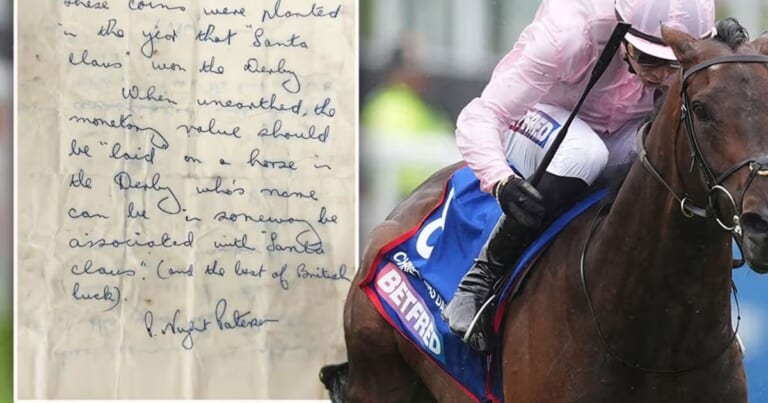 these coins were planted
in the year that "Santa
Claus" won the Derby
When unearthed, the
monetary value should
be "laid" on a horse in
the Derby who's name
can be in someway be
associated with "Santa
Claus". (and the best of British
luck).
P. Nugent Paterson
BETFRED
BETFRED